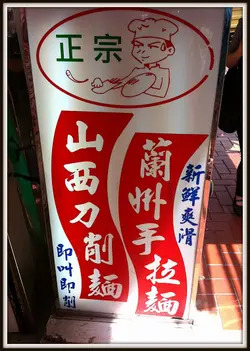 正宗
蘭州手拉麵
新鮮爽滑
山西刀削麵
即叫即削